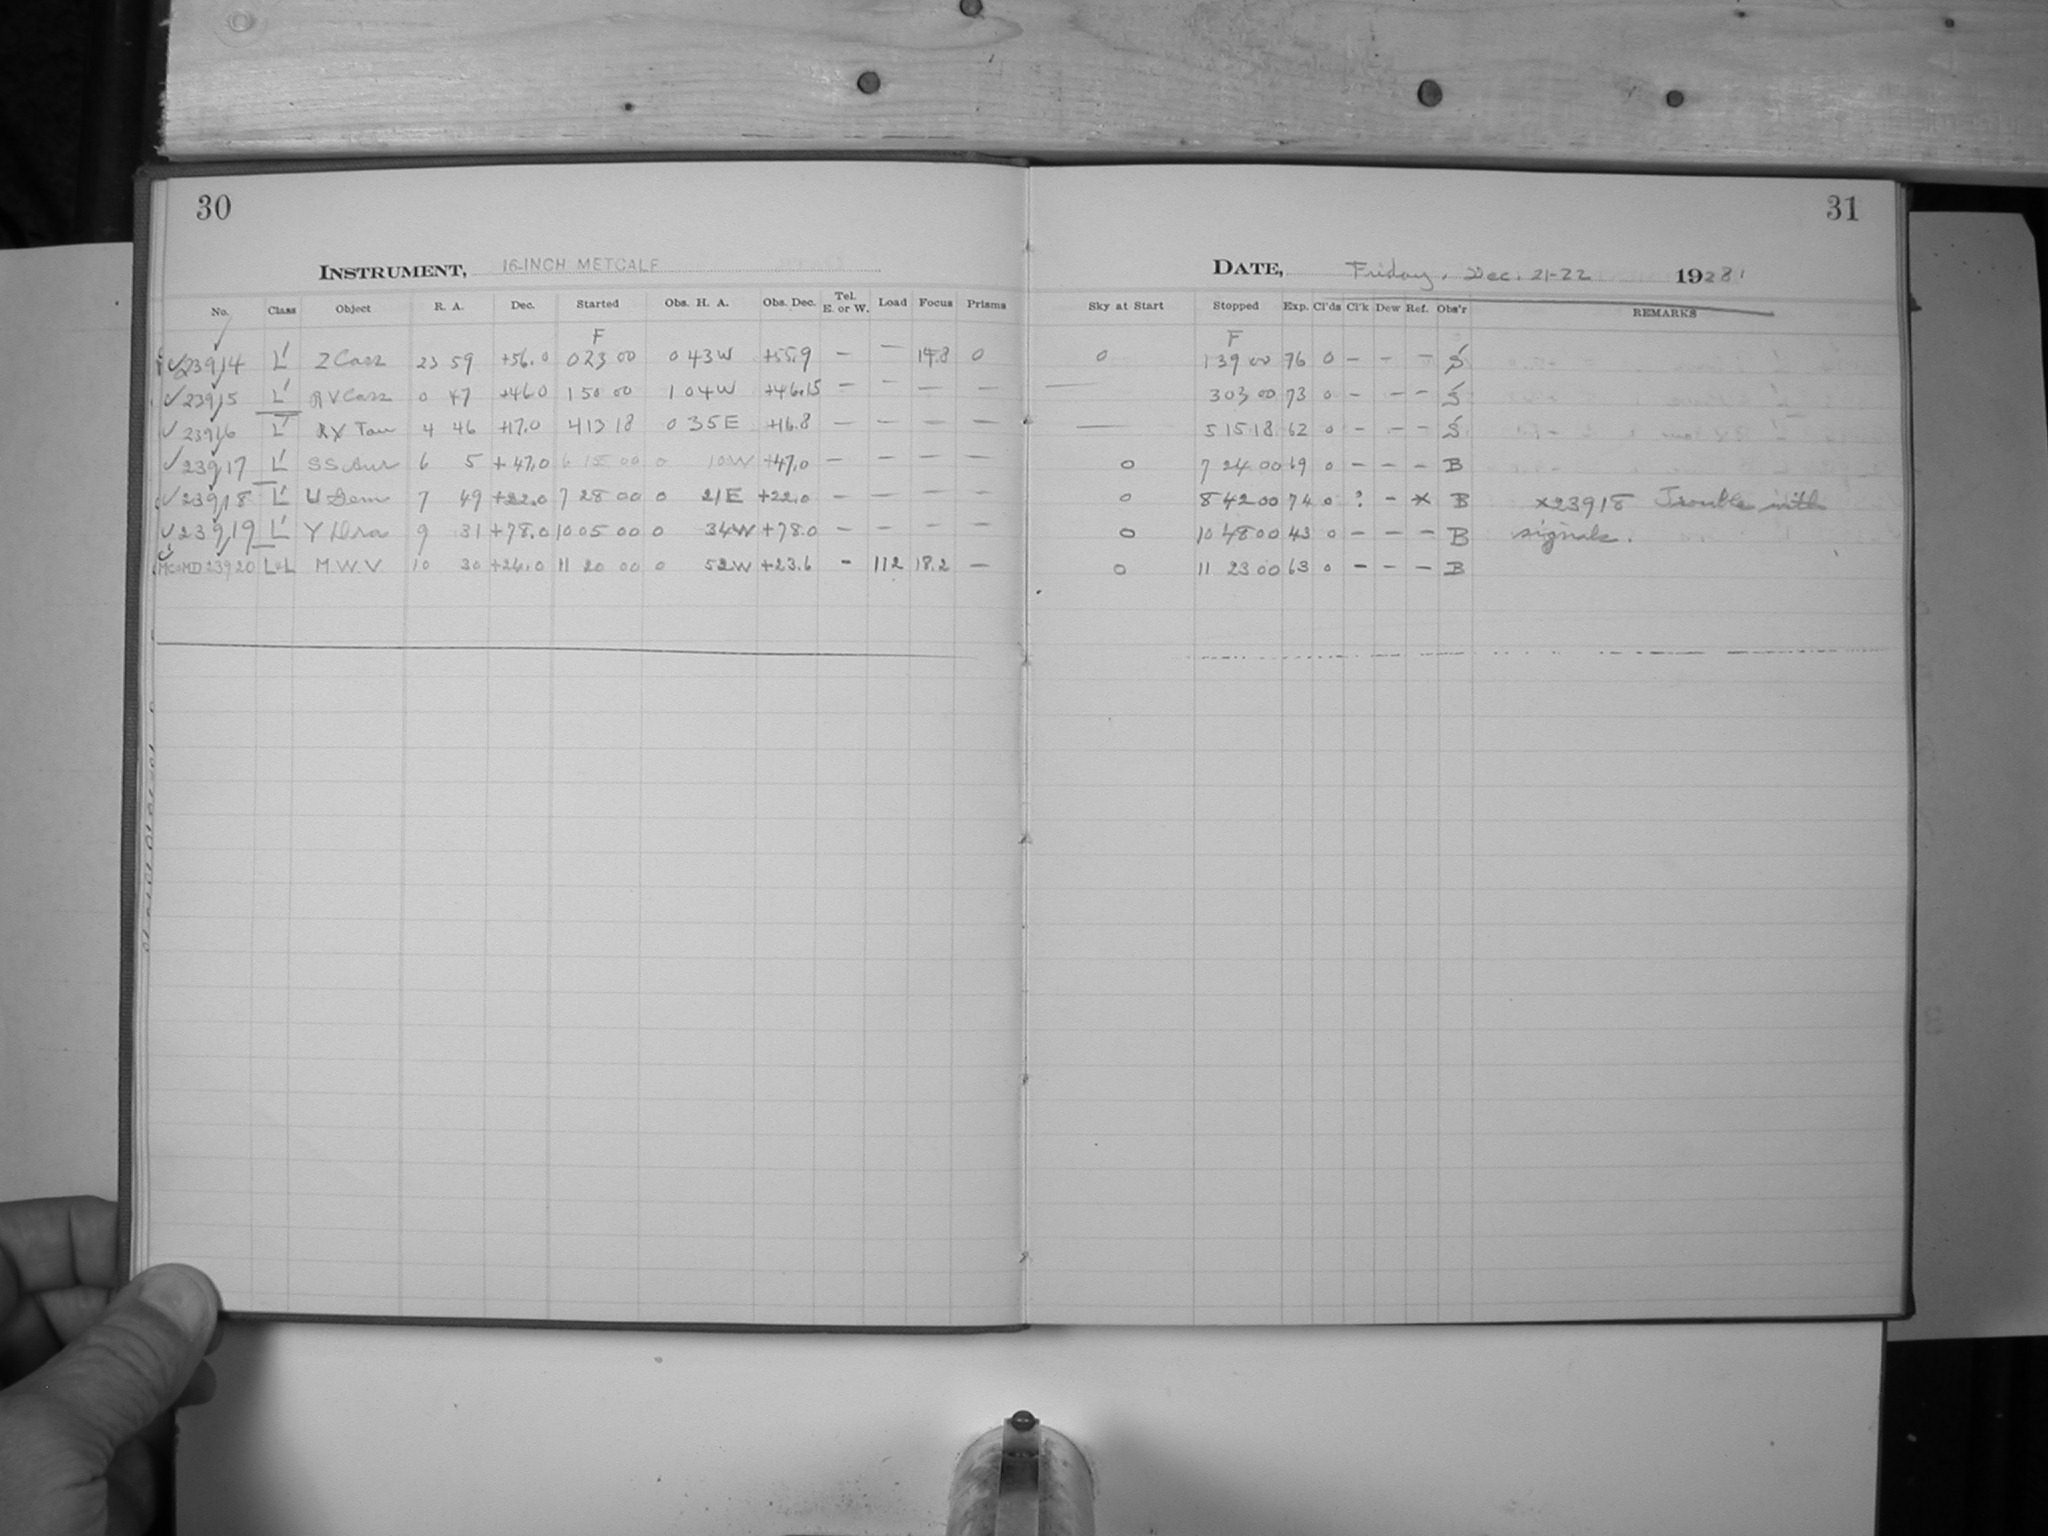 30
INSTRUMENT, 16-INCH METCALF
No. Class Object R. A. Dec. Started Obs. H. A. Obs. Dec. Tel. E. or W. Load Focus Prisms
F
✓23914 L' Z Cass 23 59 +56.0 0 23 00 0 43W +55.9 — — 14.8 0
✓23915 L' RV Cass 0 47 +46.0 1 50 00 1 04W +46.15 — — — —
✓23916 L' RX Tau 4 46 +17.0 4 13 18 0 35E +16.8 — — — —
✓23917 L' SS Aur 6 5 +47.0 6 15 00 0 10W +47.0 — — — —
✓23918 L' U Gem 7 49 +22.0 7 28 00 0 21E +22.0 — — — —
✓23919 L' Y Dra 9 31 +78.0 10 05 00 0 34W +78.0 — — — —
MC 23920 L M.W.V 10 30 +24.0 11 20 00 0 52W +23.6 — 112 18.2 —
31
DATE, Friday, Dec. 21-22 1928
Sky at Start Stopped Exp. Cl'ds Cl'k Dew Ref. Obs'r REMARKS
F
0 1 39 00 76 0 — — — S
— 3 03 00 73 0 — — — S
— 5 15 18 62 0 — — — S
0 7 24 00 69 0 — — — B
0 8 42 00 74 0 ? — x B x23918 Trouble with
0 10 48 00 43 0 — — — B signals.
0 11 23 00 63 0 — — — B